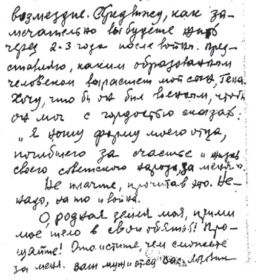 возмездие. Я предвижу, как за-
мечательно вы будете жить
через 2-3 года после войны. Пред-
ставляю, каким образованным
человеком вырастет мой сын, Гена.
Хочу, что бы он был военным, чтобы
он мог с гордостью сказать:
„Я ношу форму моего отца,
погибшего за счастье и жизнь
своего советского народа, за меня".
Не плачьте, прочитав это. Не-
надо, на то и война.
О, родная земля моя, прими
мое тело в свои объятья! Про-
щайте! Отомстите, чем сможете
за меня. Ваш муж и отец